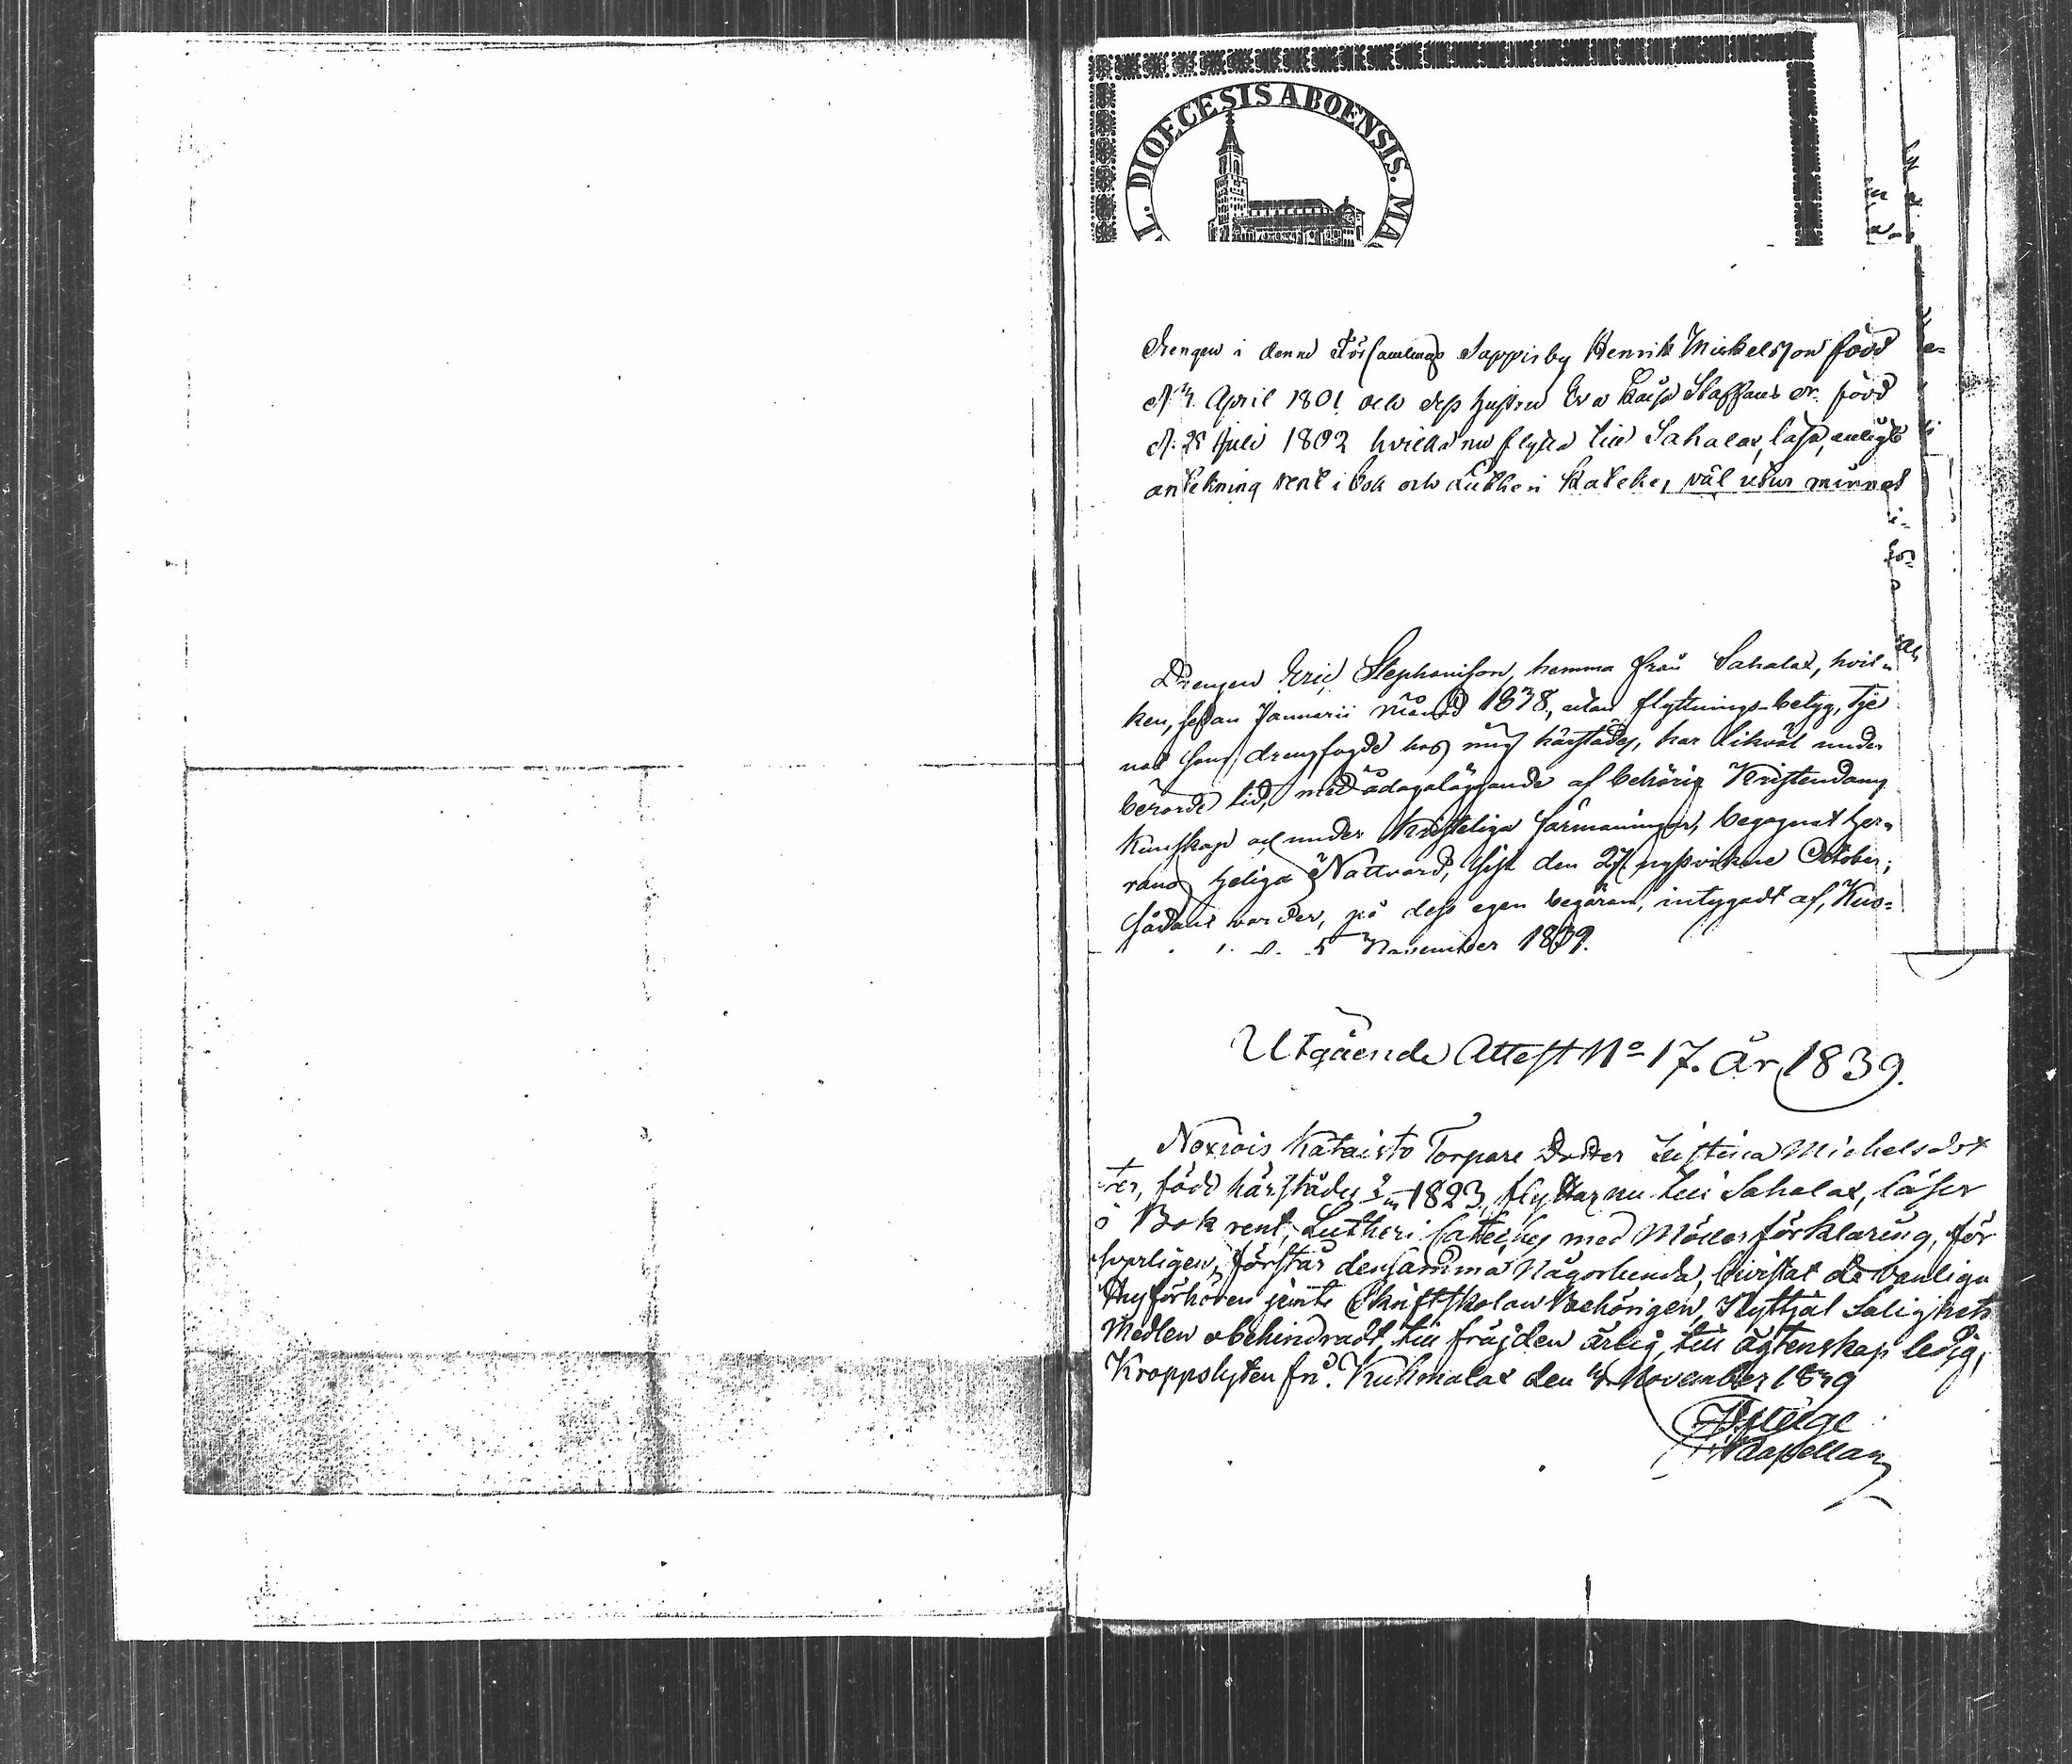 L. DIOECESIS ABOENSIS. MA
Drengen i denne Församlings Sappisby Henrik Mickelsson född
d. 4 April 1801 och dess hustru Eva Kaisa Staffans dr. född
d. 28 Juli 1802 hvilka nu flytta till Sahalax, läsa, enligt
antekning rent i bok och Lutheri Kateches väl utur minnet
Drengen Eric Stephansson, hemma från Sahalax, hvil-
ken, sedan Januarii månad 1838, utan flyttnings-betyg, tje
nat som drengfogde hos mig härstädes, har likväl under
berörde tid, med ådagaläggande af behörig Kristendoms
Kunskap och under Kristeliga förmaningar, begagnat Her-
rans heliga Nattvard, sist den 27 nystvikne October;
sådant warder, på dess egen begäran, intygadt af, Kuo=
5 November 1839.
Utgående Attest No 17. år 1839.
Torpare Dotter Michelsdot
ter, född härstädes 1823, flyttar nu till Sahalax, läser
i Bok rent, Lutheri Cateches med Möllers förklaring, för
svarligen, förstår densamma någorlunda, bivistat de vanliga
förhören jemte Skriftskolan behörigen, Nyttjat Salighets
Medlen obehindradt, till fräjden ärlig, till ägtenskap ledig,
Kroppslyten fri. Kuhmalax den 4 November 1839
Kapellan